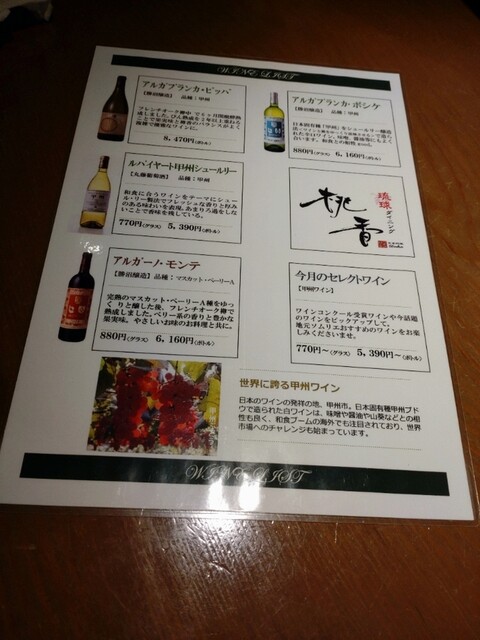 WINE LIST
アルガブランカ・ピッパ
【勝沼醸造】 品種：甲州
8,470円(ボトル)
アルガブランカ・ボシケ
【勝沼醸造】 品種：甲州
880円(グラス) 6,160円(ボトル)
ルバイヤート甲州シュールリー
【丸藤葡萄酒】 品種：甲州
和食に合うワインをテーマにシュール
リー製法でフレッシュな香りと厚み
のある味わいを表現。あまり冷蔵をしな
いことで香味を残している。
770円(グラス) 5,390円(ボトル)
琉球
ダイニング
桃香
アルガーノ・モンテ
【勝沼醸造】 品種：マスカット・ベーリーA
完熟のマスカット・ベーリーA種をゆっ
くりと醸した後、フレンチオーク樽で
熟成しました。ベリー系の香りと豊かな
果実味。やさしいお味のお料理と共に。
880円(グラス) 6,160円(ボトル)
今月のセレクトワイン
【甲州ワイン】
ワインコンクール受賞ワインや今話題
のワインをピックアップして、
地元ソムリエおすすめのワインをお楽
しみくださいませ。
770円～(グラス) 5,390円～(ボトル)
世界に誇る甲州ワイン
日本のワインの発祥の地、甲州市。日本固有種甲州ブド
ウで造られた白ワインは、味噌や醤油や山葵などとの相
性も良く、和食ブームの海外でも注目されており、世界
市場へのチャレンジも始まっています。
WINE LIST